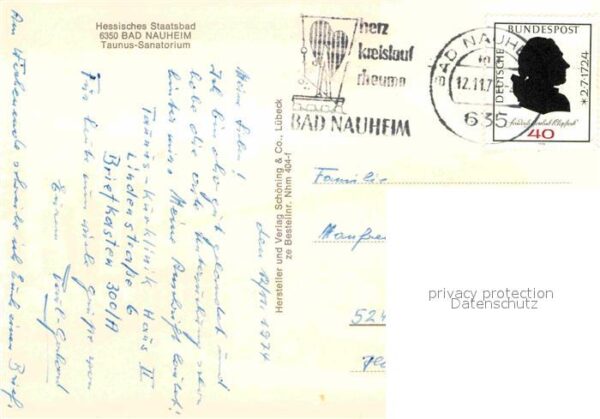 Hessisches Staatsbad
6350 BAD NAUHEIM
Taunus-Sanatorium
herz
kreislauf
rheuma
BAD NAUHEIM
BAD NAUHE
12.11.7
635
DEUTSCHE
BUNDESPOST
*2·7·1724
40
Hersteller und Verlag Schöning & Co., Lübeck
ze Bestellnr. Nhm 404-f
den 12/11. 1974
Meine Lieben!
Ich bin also gut gelandet und
habe die erste Untersuchung schon
hinter mir. Meine Anschrift lautet:
Taunus-Kurklinik Haus II
Lindenstraße 6
Briefkasten 300/A
Für heute nun viele Grüße von
Eurem
Am Wochenende schreibe ich Euch einen Brief.
Familie
Manfre
524
privacy protection
Datenschutz